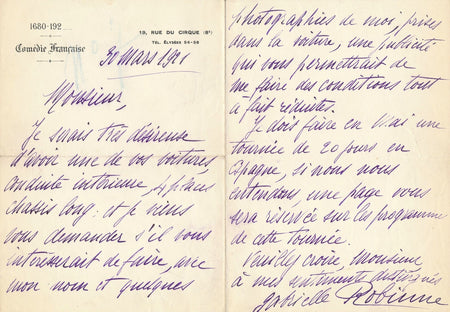 1680-192
Comédie Française
19, RUE DU CIRQUE (8e)
TÉL. ÉLYSÉES 54-58
30 mars 1921
Monsieur,
Je serais très désireuse
d'avoir une de vos voitures
conduite intérieure, 4 places
chassis long : et je viens
vous demander s'il vous
intéresserait de faire, avec
mon nom et quelques
photographies de moi, prises
dans la voiture, une publicité
qui vous permettrait de
me faire des conditions tout
à fait réduites.
Je dois faire en mai une
tournée de 20 jours en
Espagne, si nous nous
entendons, une page vous
sera réservée sur les programmes
de cette tournée.
Veuillez croire, monsieur
à mes sentiments distingués
gabrielle Robinne